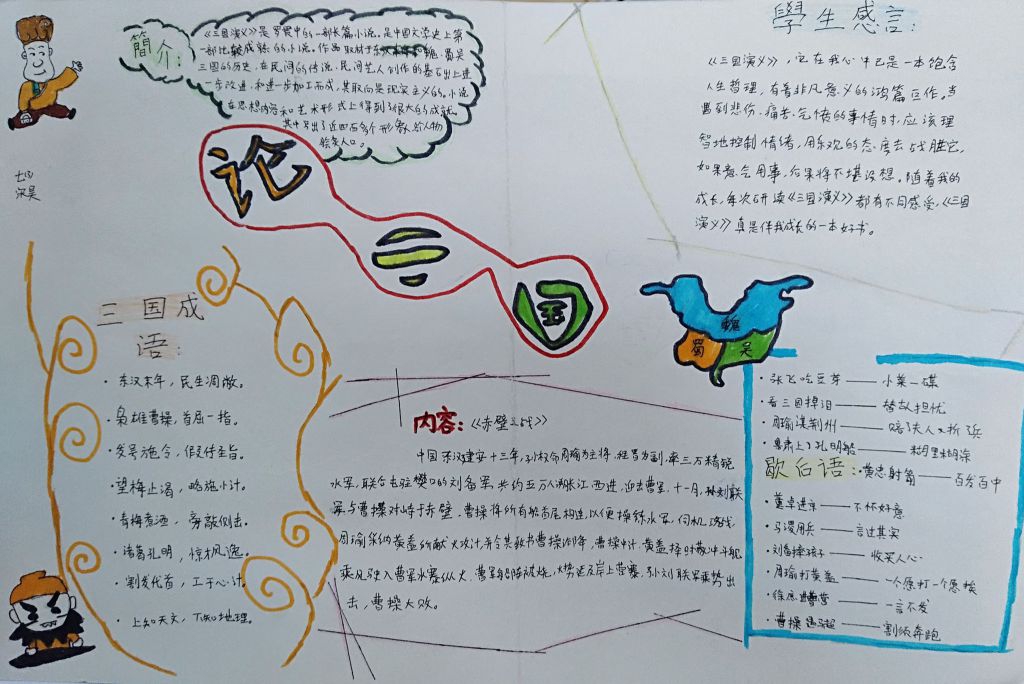 簡介：
《三国演义》是罗贯中的一部长篇小说。是中国文学史上第
一部比较成熟的小说。作品取材于东汉末年和魏、蜀吴
三国的历史，在民间的传说，民间艺人创作的基石出上进
一步改进，和进一步加工而成，其取向是现实主义的。小说
在思想内容和艺术形式上得到了很大的成就。
其中写出了近四百多个形象，
七(3)
宋昊
论三国
學生感言：
《三国演义》，它在我心中已是一本饱含
人生哲理，有着非凡意义的鸿篇巨作。当
遇到悲伤、痛苦、气愤的事情时，应该理
智地控制情绪，用乐观的态度去战胜它，
如果意气用事，后果将不堪设想。随着我的
成长，每次研读《三国演义》都有不同感受，《三国
演义》真是伴我成长的一本好书。
三国成
语：
·东汉末年，民生凋敝。
·枭雄曹操，首屈一指。
·发号施令，假传圣旨。
·望梅止渴，略施小计。
·青梅煮酒，旁敲侧击。
·诸葛孔明，惊风逸。
·割发代首，工于心计。
·上知天文，下知地理。
魏
蜀 吴
内容：《赤壁之战》
中国东汉建安十三年，孙权命周瑜为主将，程普为副，率三万精锐
水军，联合屯驻樊口的刘备军，共约五万人溯长江西进，迎击曹军，十一月，孙刘联
军与曹操对峙于赤壁。曹操将所有船首尾相连，以便操练水军，伺机攻战，
周瑜采纳黄盖所献火攻计，并令其致书曹操诈降，曹操中计，黄盖择时载冲斗舰
乘风驶入曹军水寨纵火，曹军船阵被烧，火势延及岸上营寨，孙刘联军乘势出
击，曹操大败。
·张飞吃豆芽——小菜一碟
·看三国掉泪——替古人担忧
·周瑜谋荆州——赔了夫人又折了兵
·鲁肃上了孔明船——糊里糊涂
歇后语：·黄忠射箭——百发百中
·董卓进京——不怀好意
·马谡用兵——言过其实
·刘备摔孩子——收买人心
·周瑜打黄盖——一个愿打一个愿挨
·徐庶进曹营——一言不发
·曹操遇马超——割须奔跑